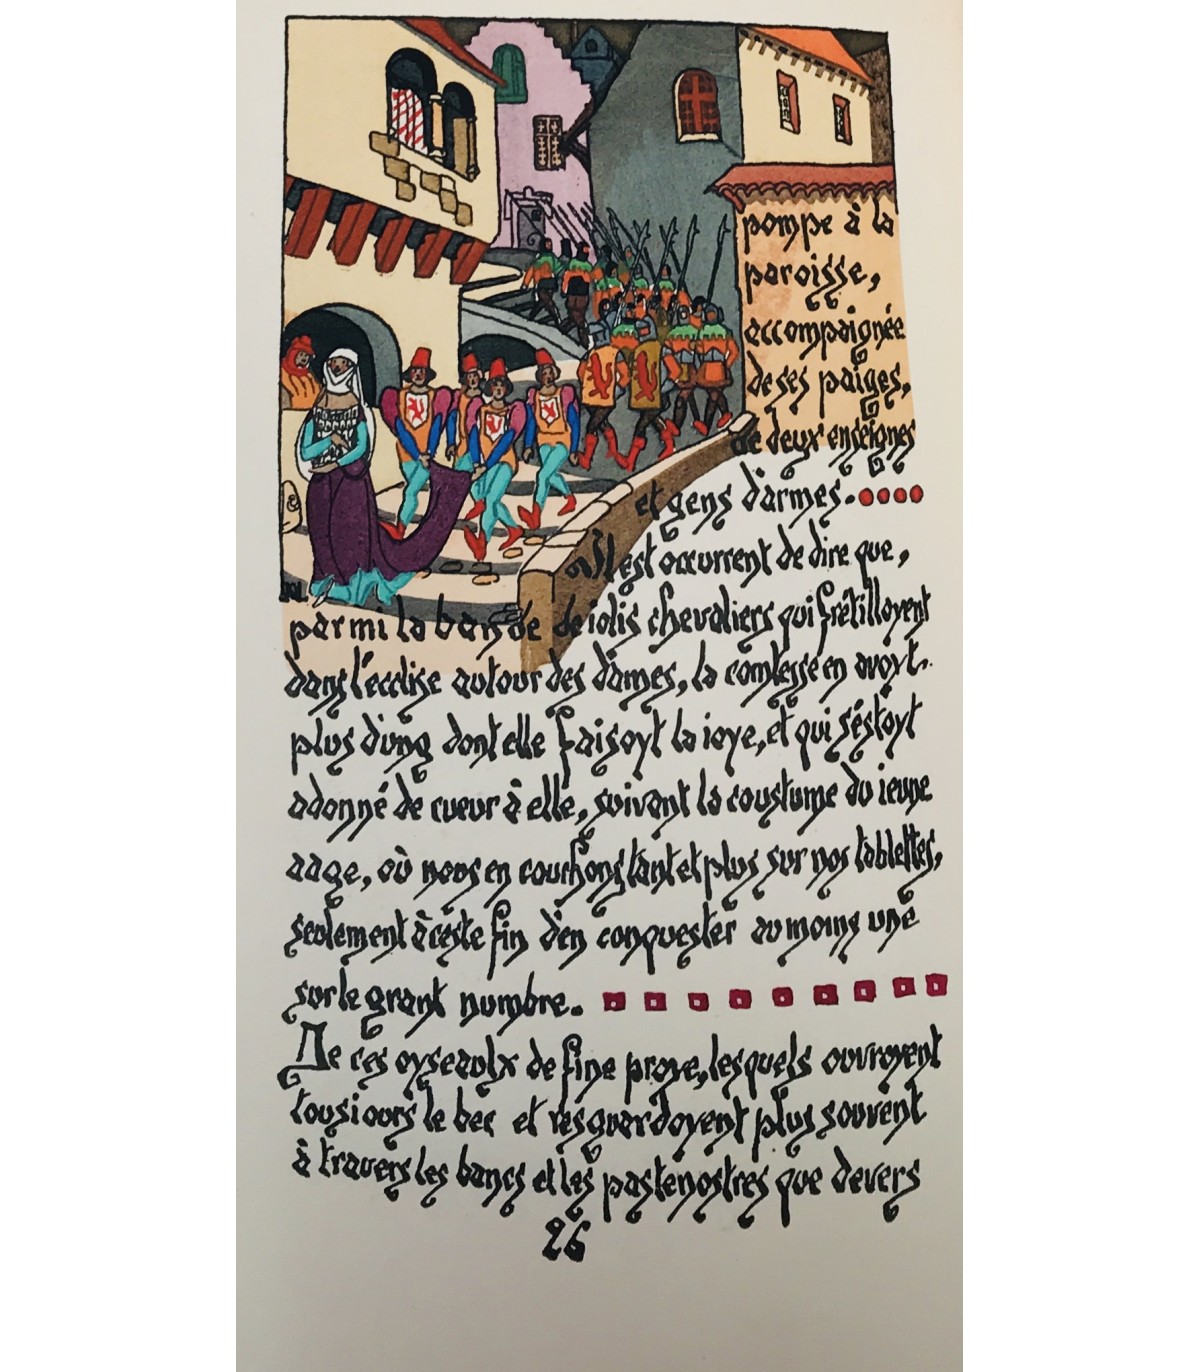 pompe à la
paroisse,
accompaignée
de ses paiges,
de deux enseignes
et gens d'armes.
Il est occurrent de dire que,
parmi la bande de iolis chevaliers qui frétilloyent
dans l'ecclise autour des dames, la comtesse en avoyt
plus d'ung dont elle faisoyt la ioye, et qui s'éstoyt
adonné de cueur à elle, suivant la coustume du ieune
aage, où nous en couchons tant et plus sur nos tablettes,
seulement à ceste fin d'en conquester au moins une
sur le grant numbre.
De ces oyseaulx de fine proye, lesquels ouvroyent
tousiours le bec et resguardoyent plus souvent
à travers les bancs et les pastenostres que devers
26